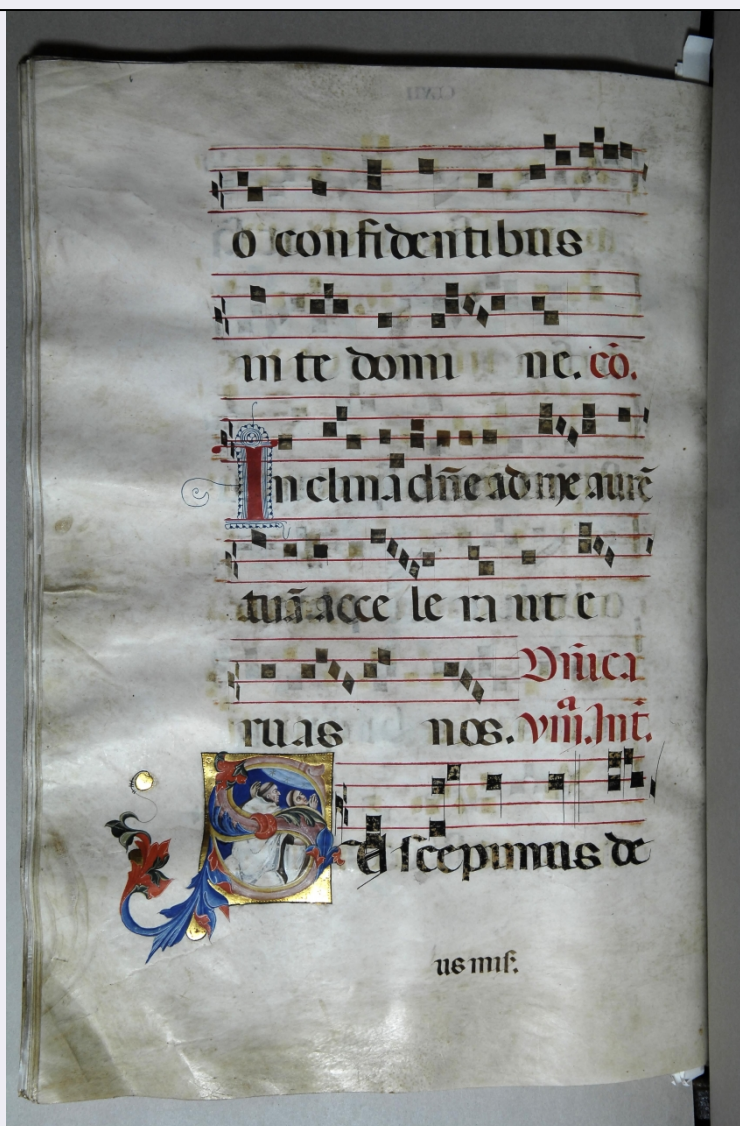 o confidentibus
in te domi ne. cō.
In clina dn̄e ad me aurē
tuā acce le ra ut e
ruas nos. Dn̄ica
viii. Int̄.
Suscepimus de
us mis̄.